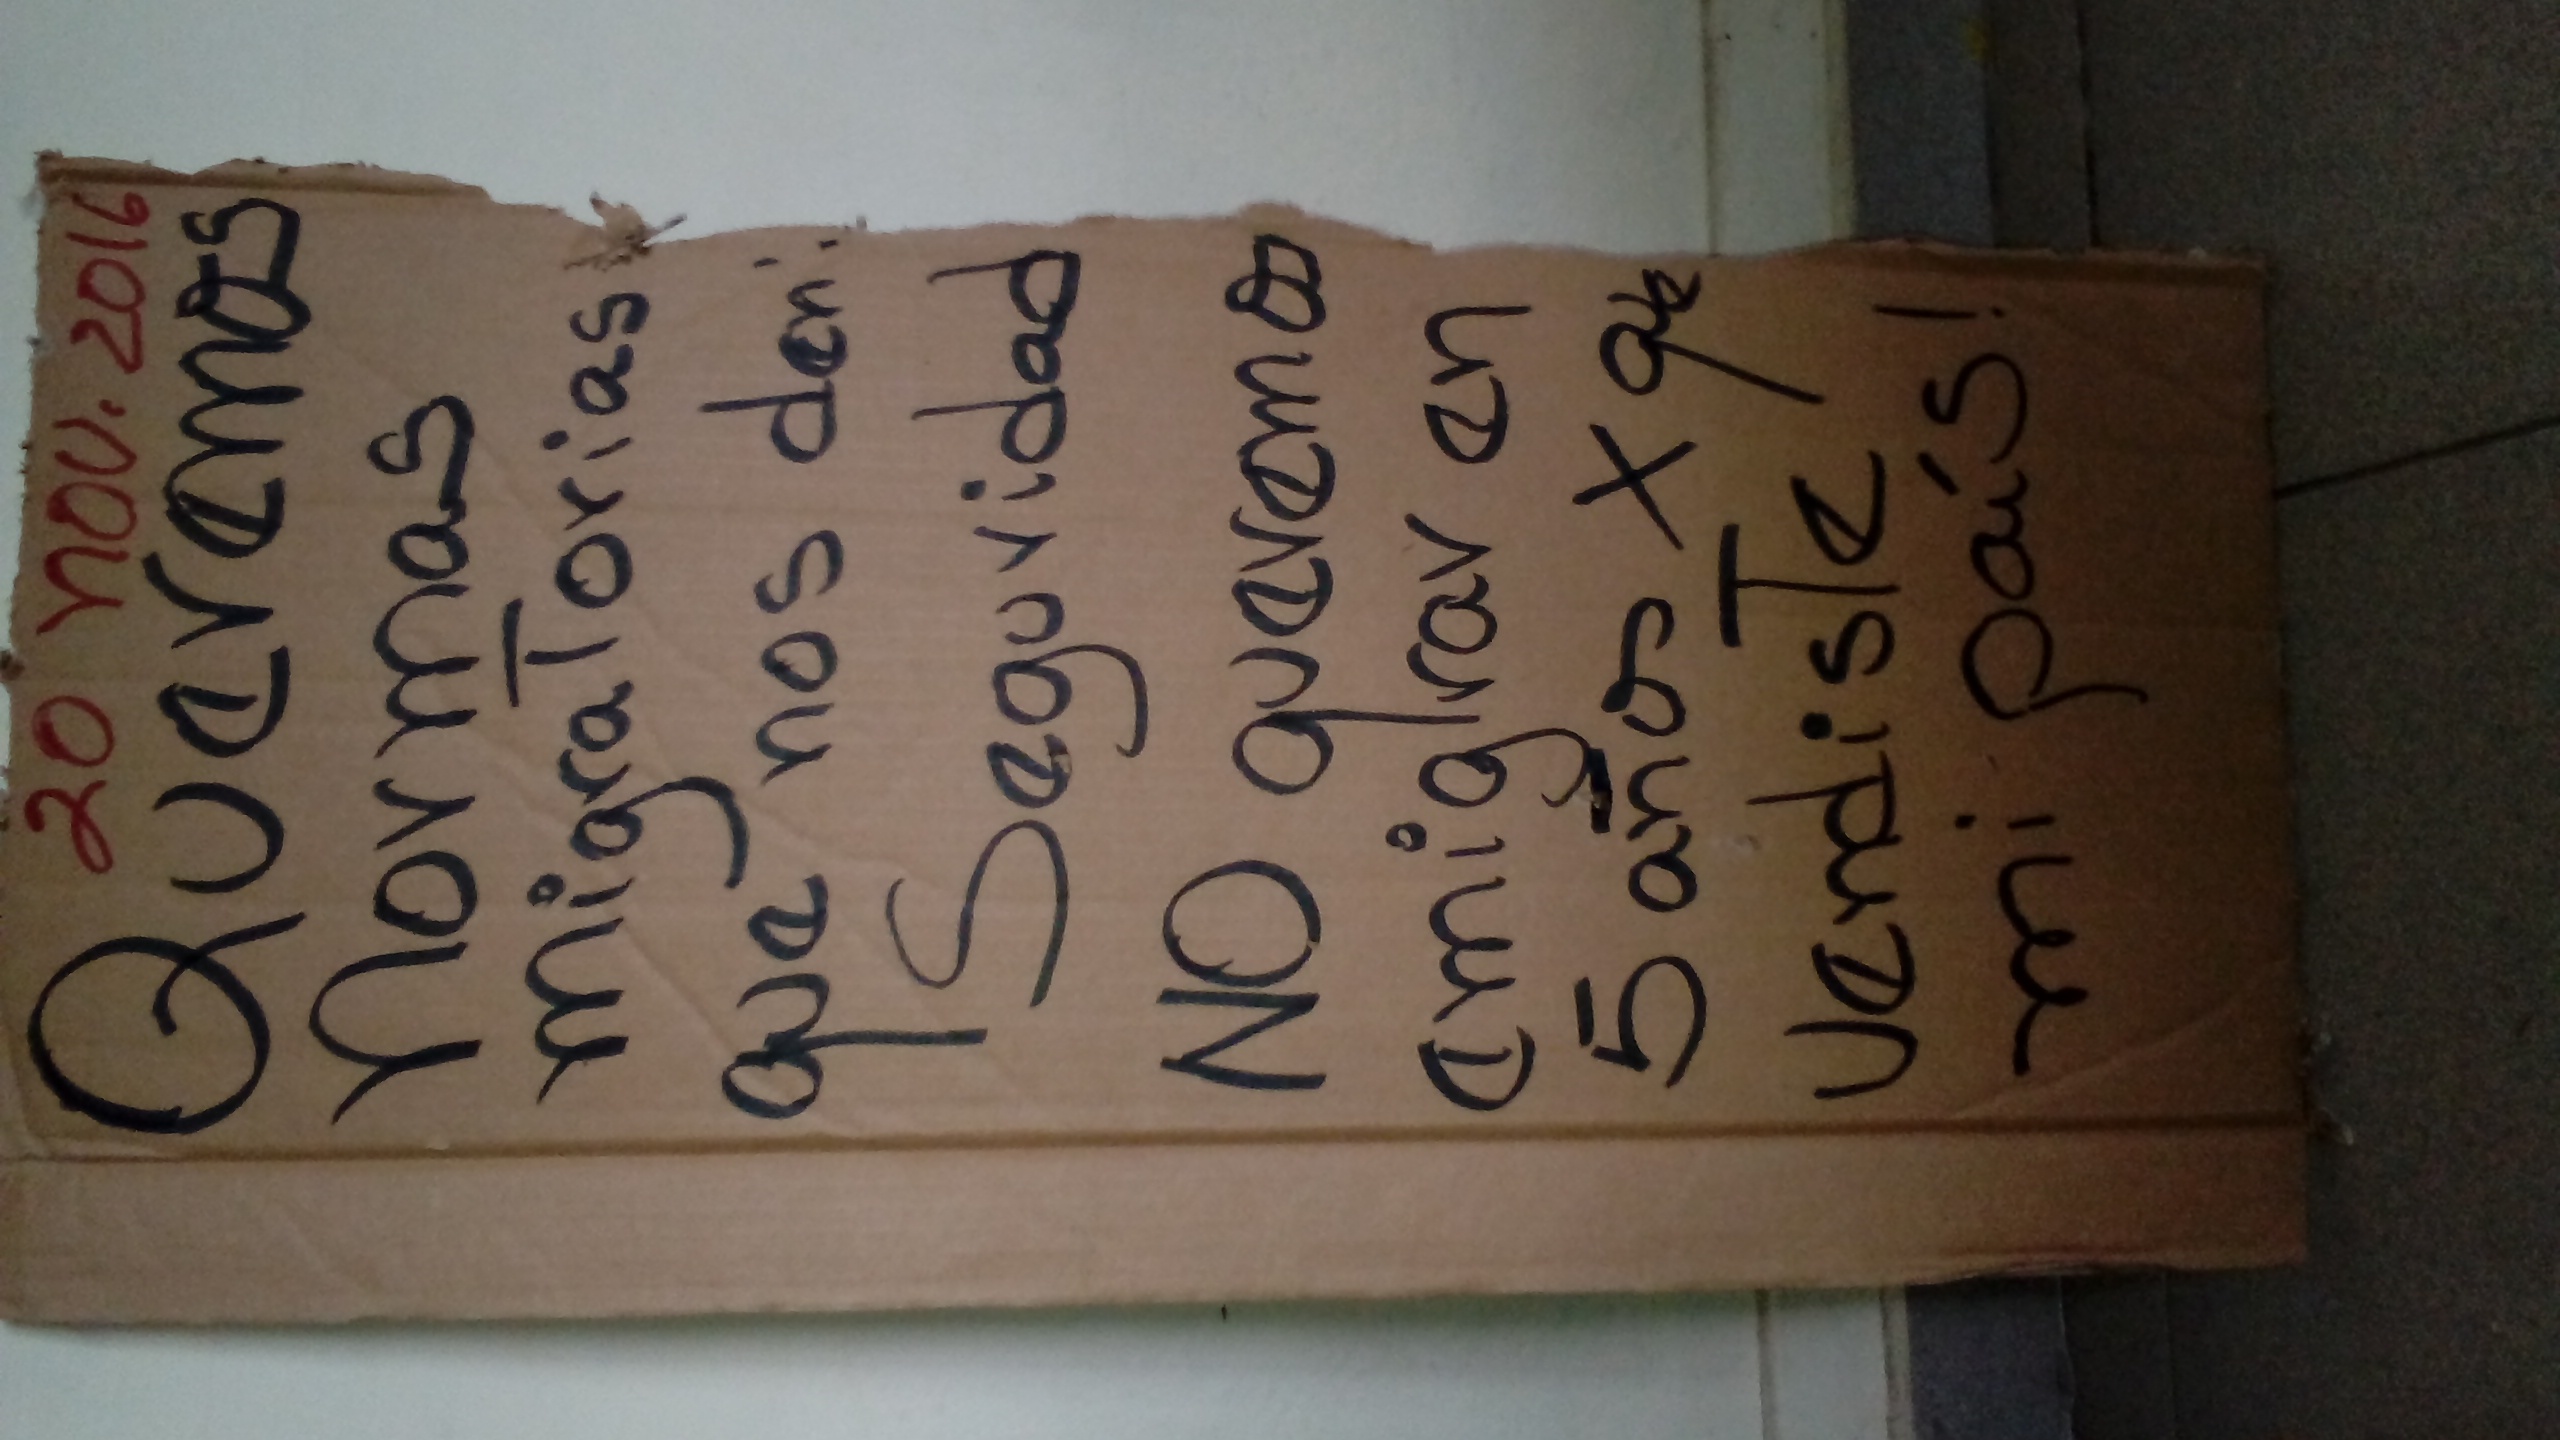 20 nov. 2016
Queremos
normas
migraTorias
que nos den:
Seguridad
NO queremos
emigrar en
5 años x qk
vendisTe
mi país!